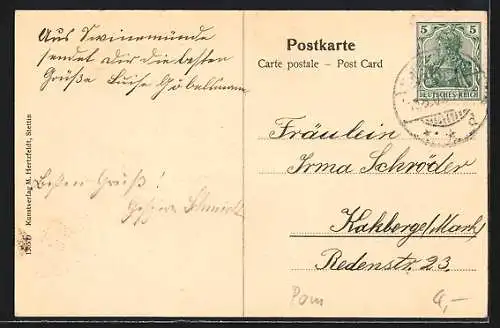 Aus Swinemünde
sendet Dir die besten
Grüße Luise Göbelsmann
Besten Gruß!
Schmidt
Kunstverlag M. Hertzfeldt, Stettin
Postkarte
Carte postale – Post Card
5 5
DEUTSCHES REICH
Fräulein
Irma Schröder
Kalkberge/Mark/
Redenstr. 23.
Pom
4,–